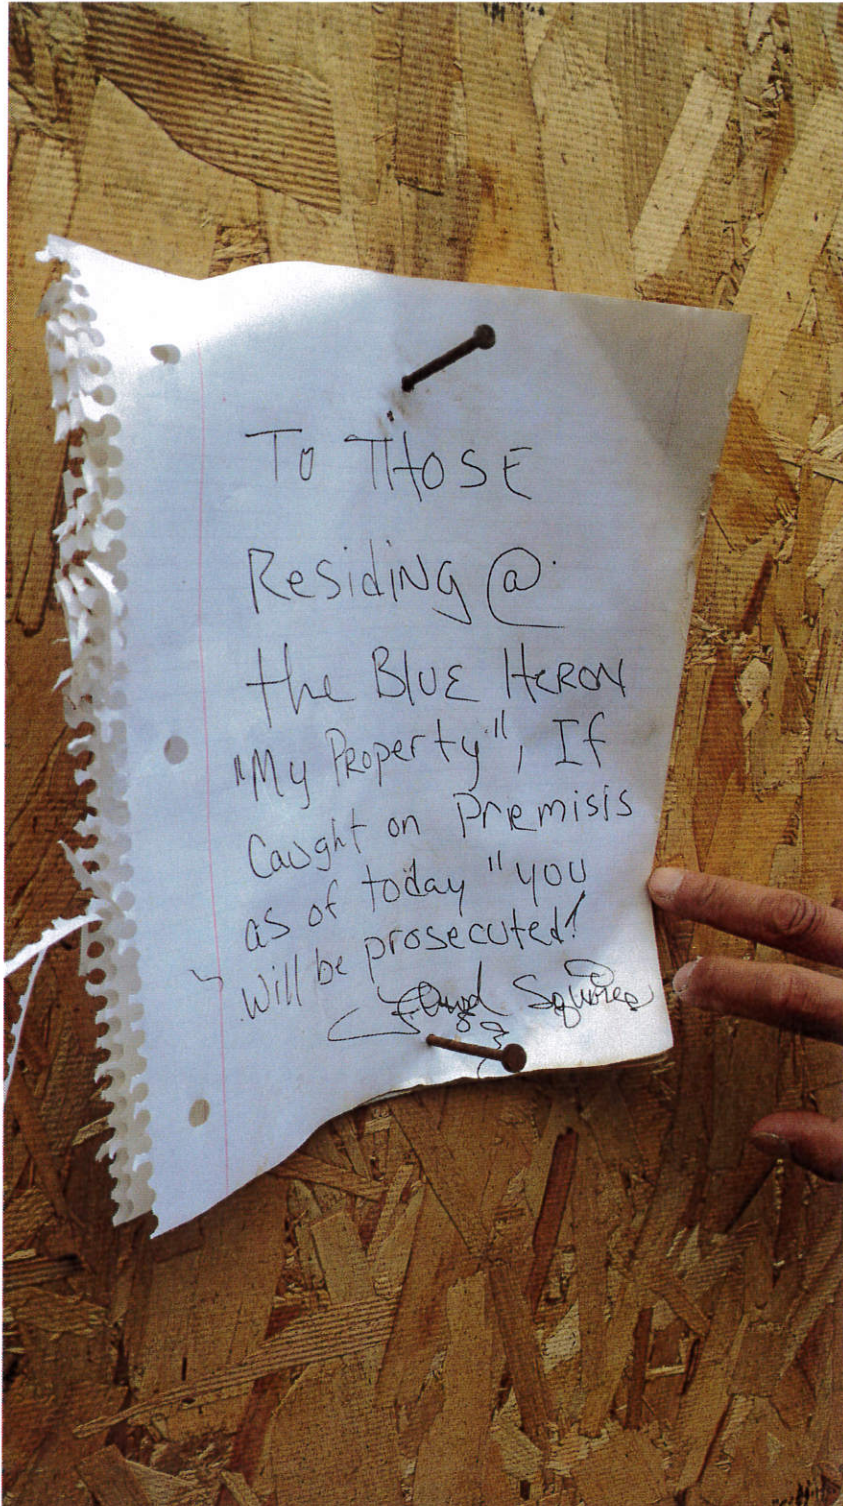 To THOSE
Residing @
the BLUE HERON
"My Property", If
Caught on Premisis
as of today "you
will be prosecuted!
Squires